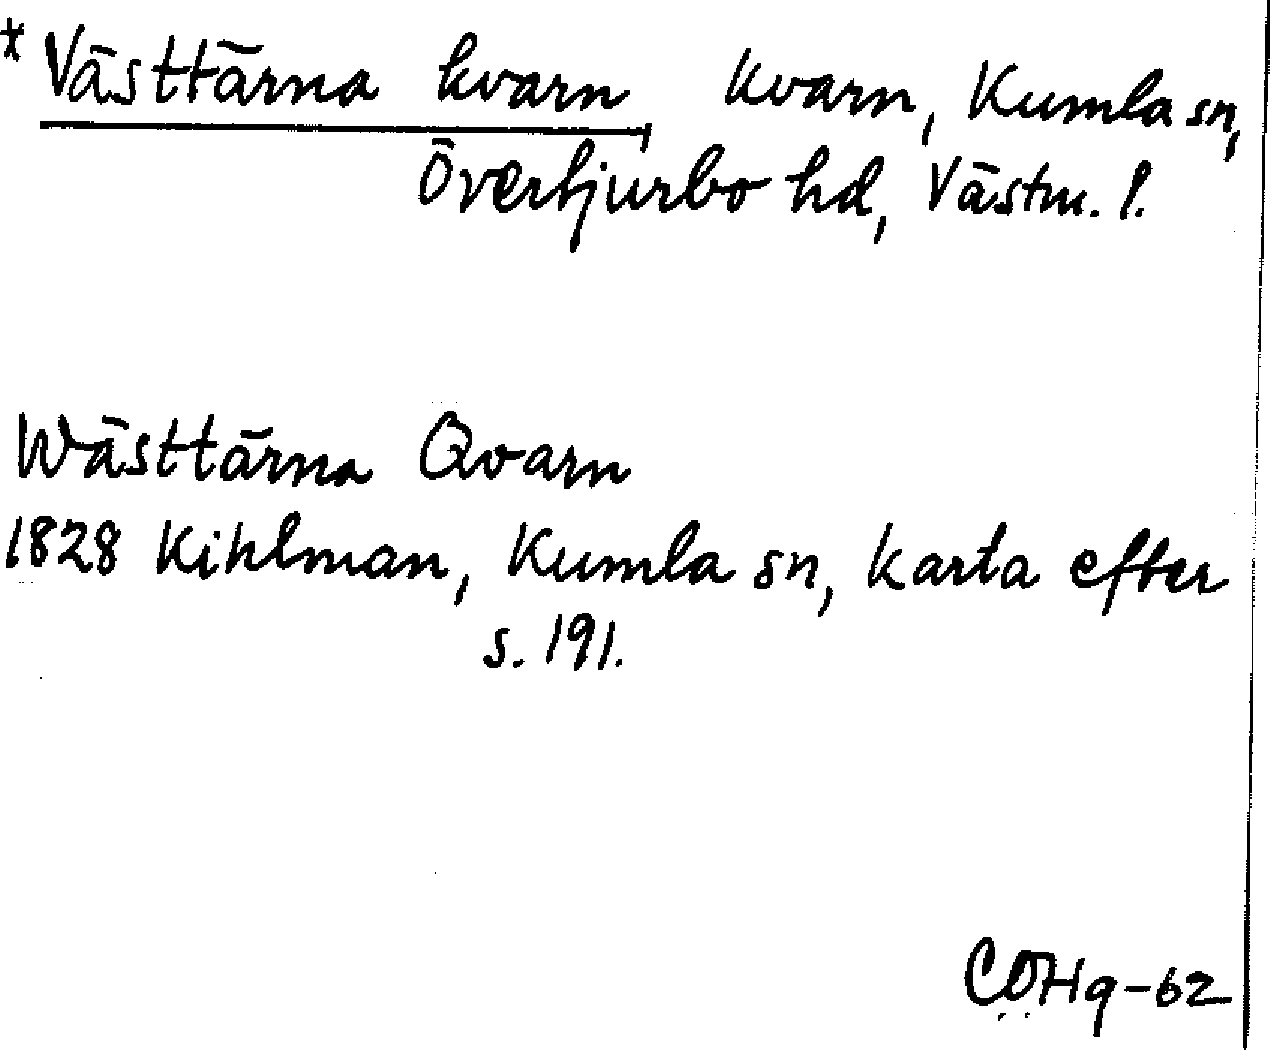 * Västtärna kvarn, kvarn, Kumla sn,
Övertjurbo hd, Västm. l.
Wästtärna Qvarn
1828 Kihlman, Kumla sn, karta efter
s. 191.
CÖHg-62